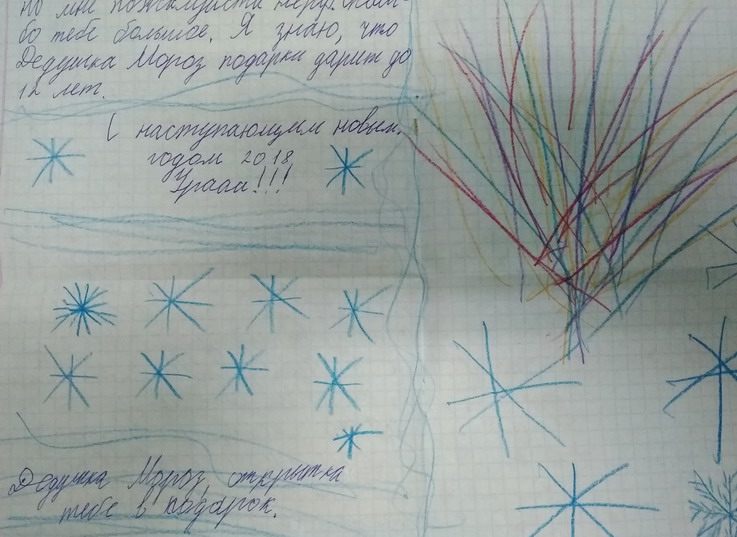 но мне пожалуйста
бо тебе большое. Я знаю, что
Дедушка Мороз подарки дарит до
12 лет.
С наступающим новым
годом 2018
Урааа!!!
Дедушка Мороз, открытка
тебе в подарок.